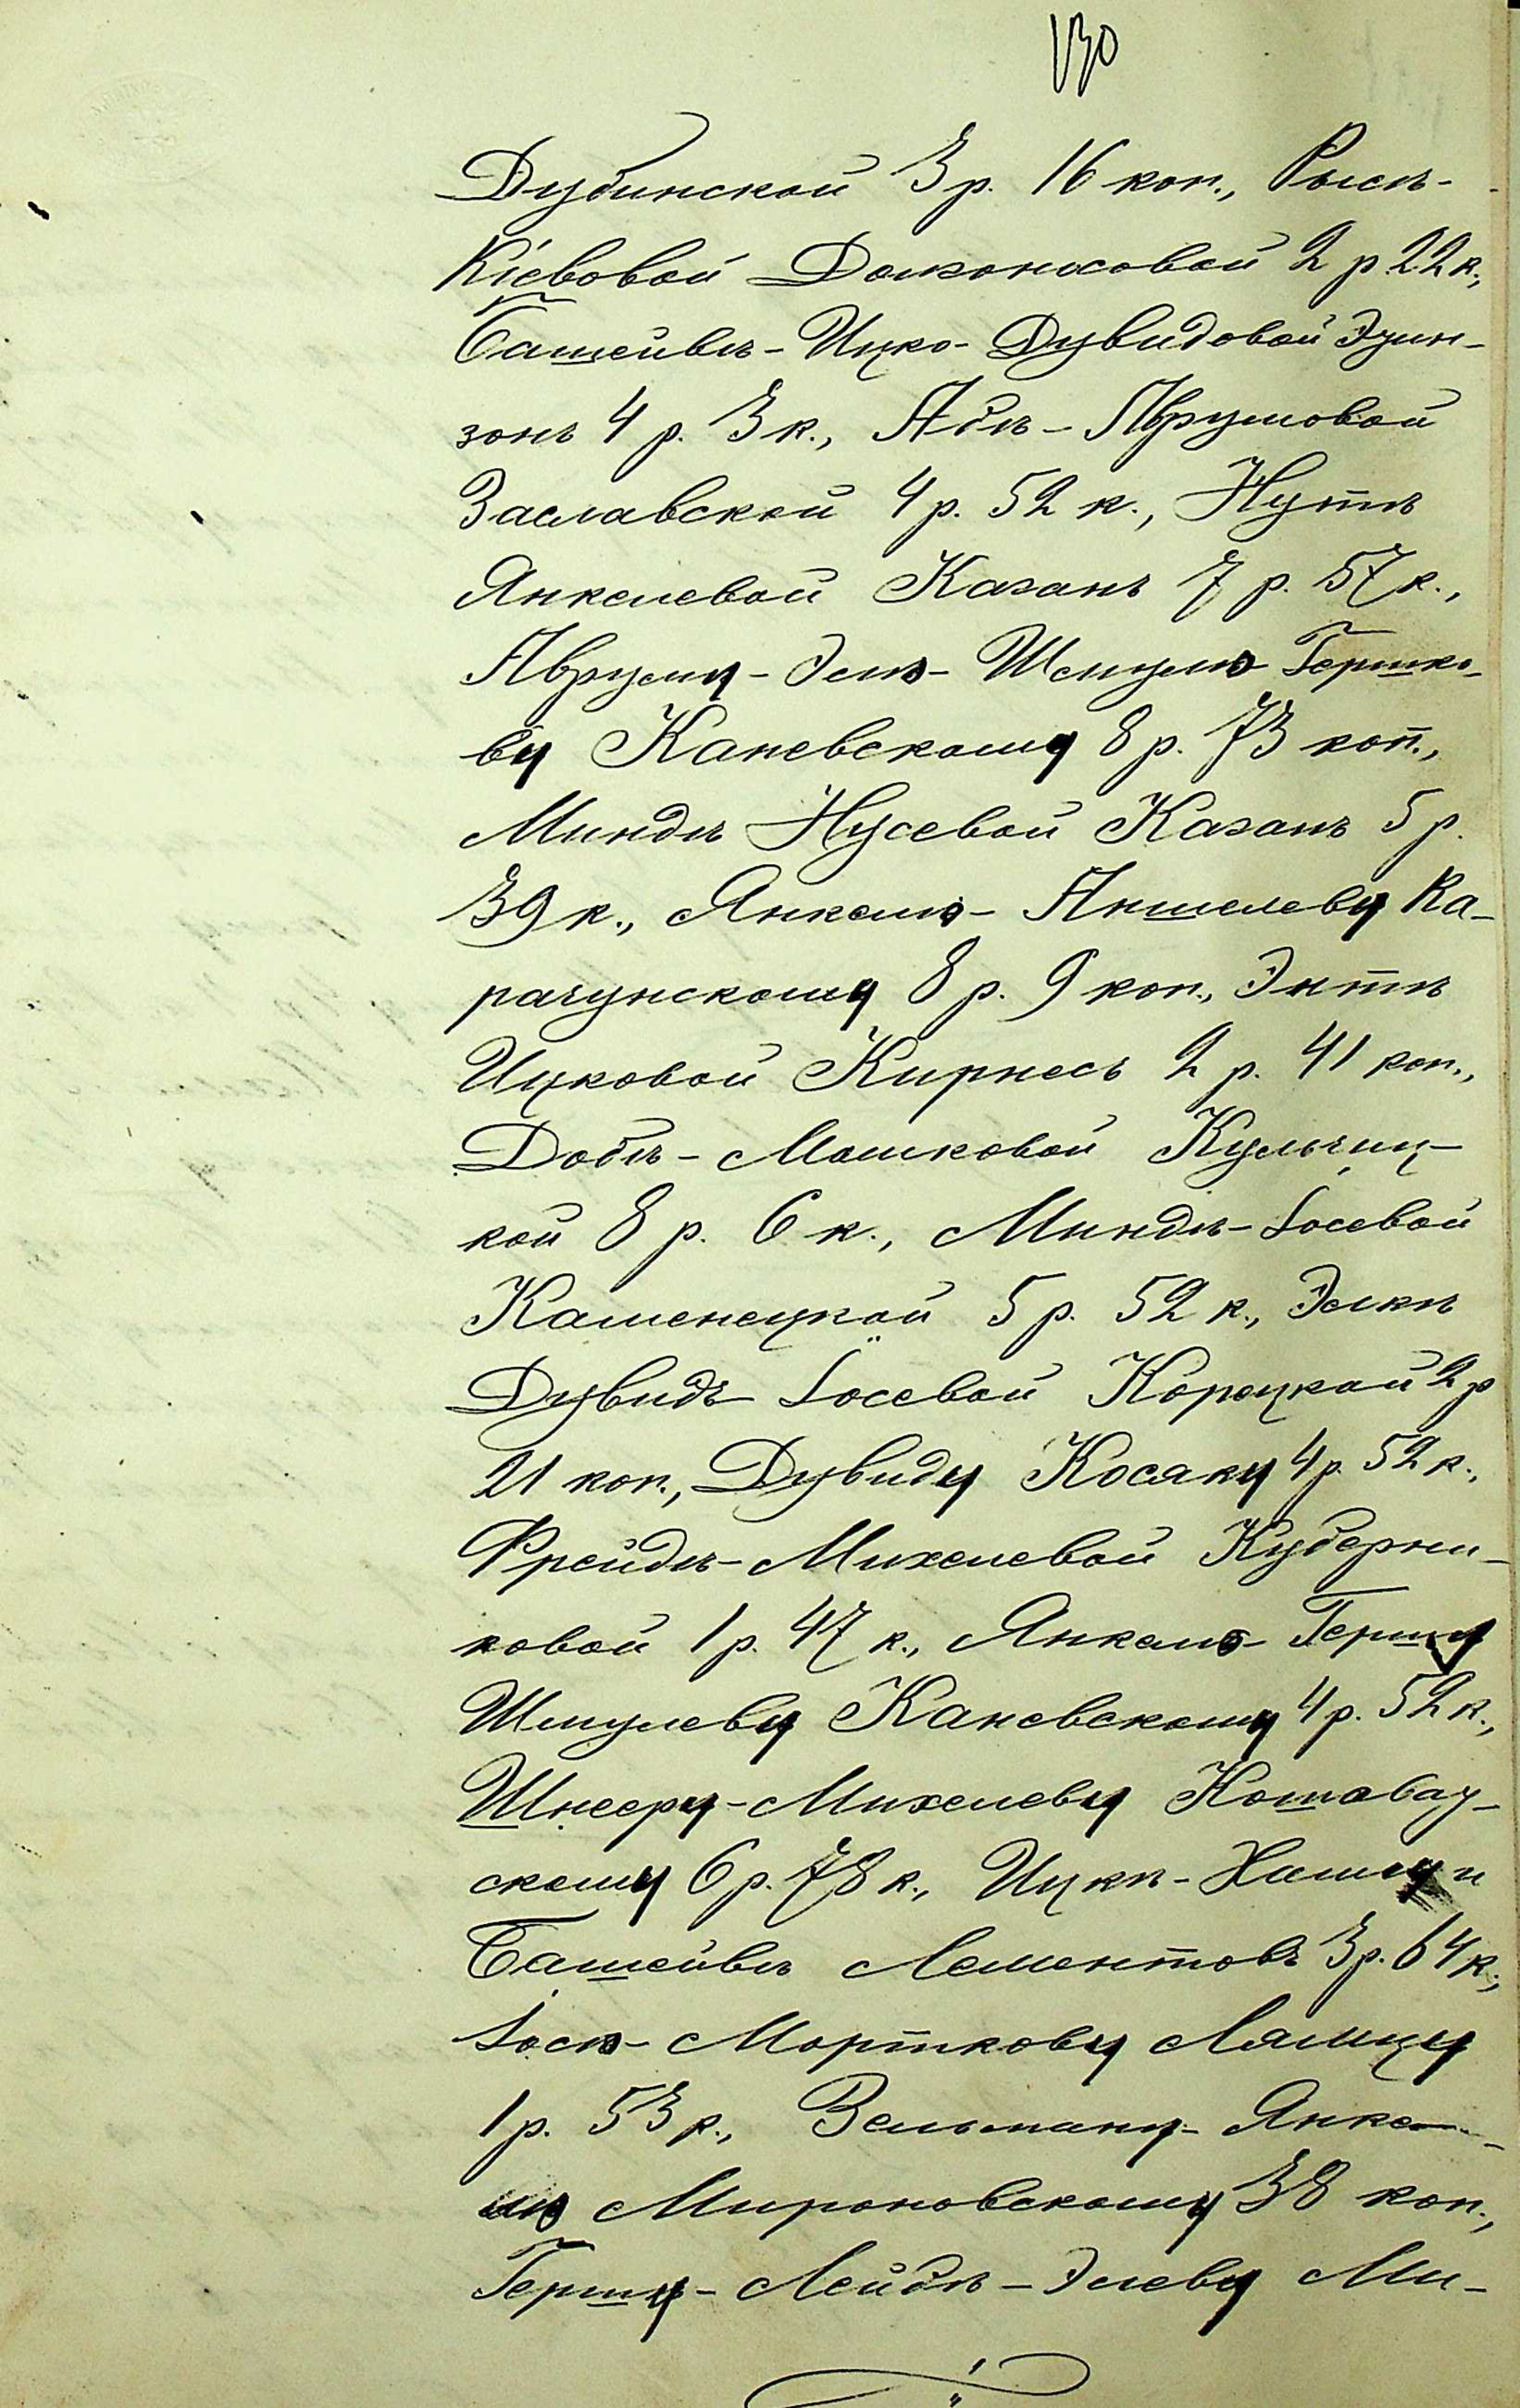 130
Дубинской 3 р. 16 коп., Рысѣ-
Кіевовой 2 р 22 к.,
Башейвѣ-Ицко-Дувидовой Эдин-
зонъ 4 р. 3 к., Адѣ-Аврумовой
Заславской 4 р. 52 к., Нутѣ
Янкелевой Казанъ 7 р. 57 к.,
Авруму-Элю-Шмулю Гершко-
ву Каневскому 8 р. 73 коп.,
Миндѣ Нусевой Казанъ 5 р.
39 к., Янкелю-Аншелеву Ка-
рачунскому 8 р. 9 коп., Энтѣ
Ицковой Кирнесъ 2 р. 41 коп.,
Добѣ-Мошковой Кульчиц-
кой 8 р. 6 к., Миндѣ-Іосевой
Каменецкой 5 р. 52 к., Элкѣ
Дувидъ Іосевой Корецкой 2 р
21 коп., Дувиду Косяку 4 р. 52 к.,
Фрейдѣ-Михелевой Куберни-
ковой 1 р. 47 к., Янкелю-Гершу
Шмулеву Каневскому 4 р. 52 к.,
Шнееру-Михелеву Кошевац-
скому 6 р. 78 к., Ицкѣ-Хаиму и
Башейвѣ Лементовъ 3 р. 64 к.,
Іосю-Морткову Лямцу
1 р. 53 к., Зельману-Янке-
лю Мироновскому 38 коп.,
Гершу-Лейбѣ-Элеву Ми-